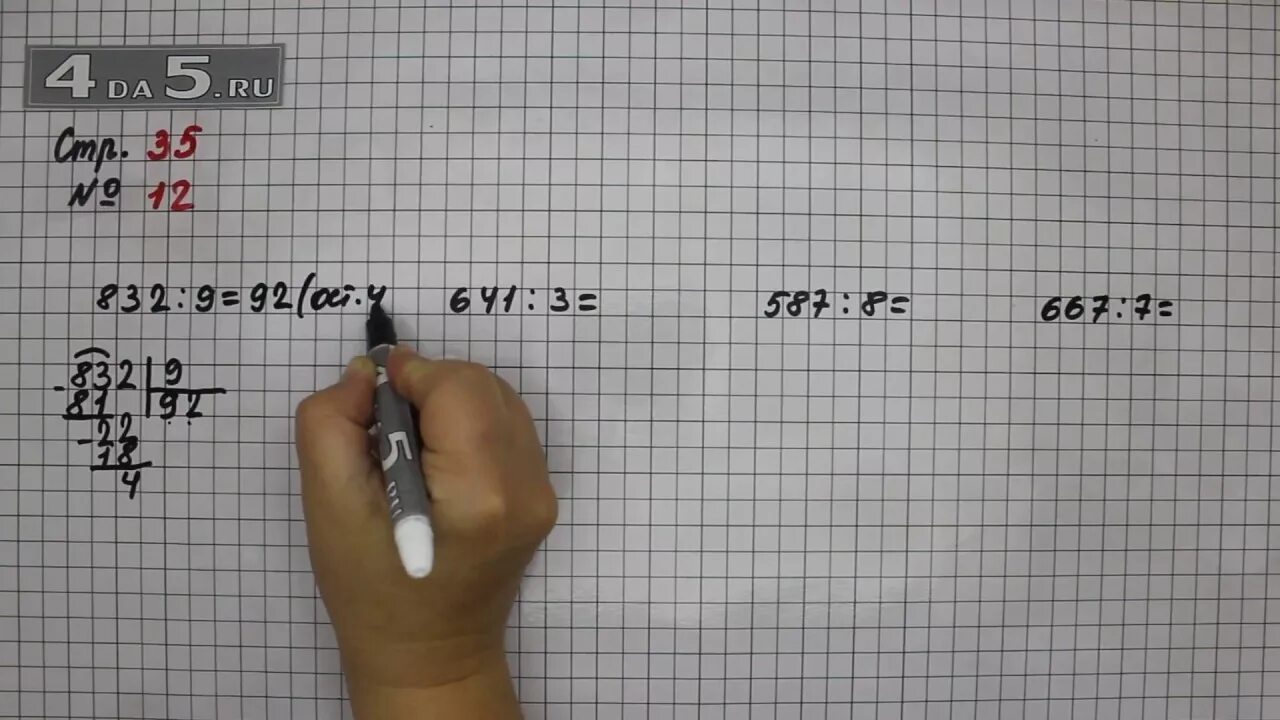 4DA5.RU
Стр. 35
№ 12
832:9=92(ост.4
641:3=
587:8=
667:7=
832 9
- 81 92
- 22
18
4
5.RU